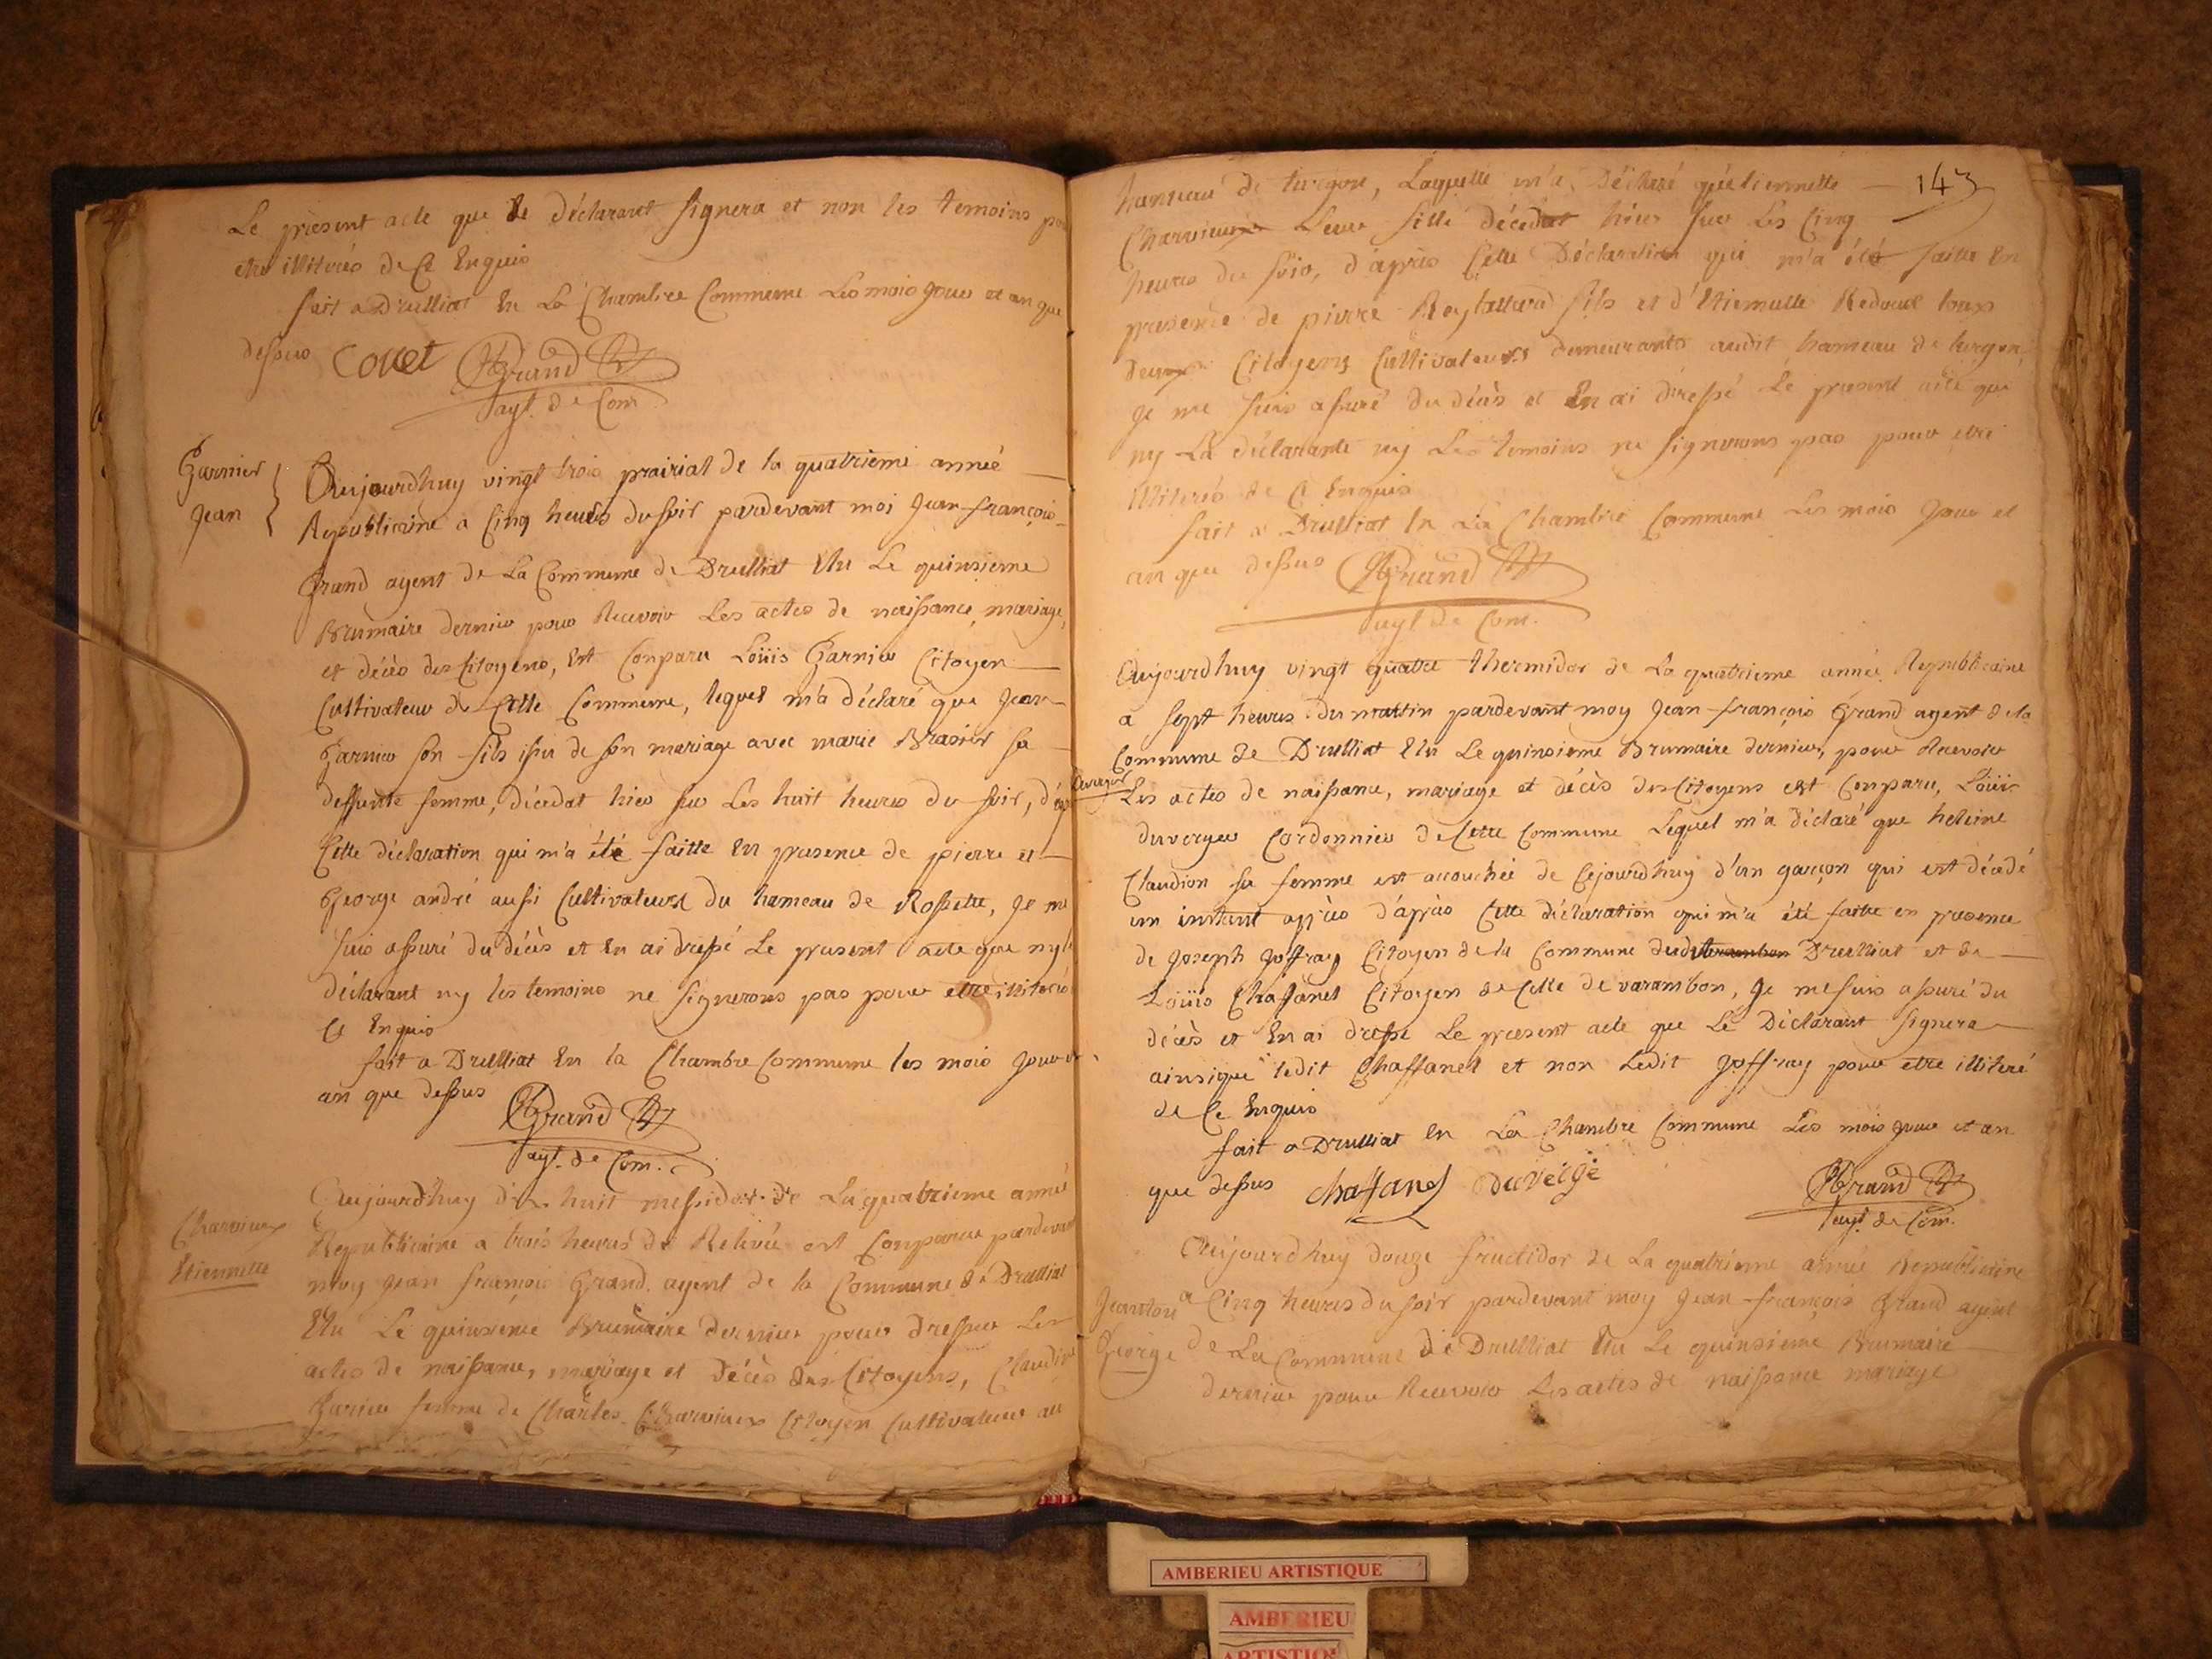 Le present acte que le déclarant signera et non les temoins pour
etre illiterés de Ce Enquis
fait a Drulliat En La Chambre Commune Les mois jour et an que
dessus Covet Grand
agt. de Com.
Garnier
Jean
Aujourdhuy vingt trois prairial de la quatrieme année
Republicaine a Cinq heures du soir pardevant moi Jean françois
Grand agent de La Commune de Drulliat Elu Le quinsieme
Brumaire dernier pour Recevoir Les actes de naissance, mariage,
et décès des Citoyens, Est Conparu Loüis Garnier Citoyen
Cultivateur de Cette Commune, lequel m'a déclaré que Jean
Garnier son fils issu de son mariage avec marie Brasier sa
deffunte femme, décedat hier sur Les huit heures du soir, d'après
Cette déclaration qui m'a été faitte En presence de pierre et
George andré aussi Cultivateurs du hameau de Rossette, je me
suis assuré du décès et En ai dressé Le present acte que ny le
déclarant ny les temoins ne signerons pas pour etre illiterés
Ce Enquis
fait a Drulliat En la Chambre Commune les mois jour et
an que dessus Grand
agt. de Com.
Charvieux
Etiennette
Aujourdhuy dix huit messidor de La quatrieme année
Republicaine a trois heures de Relevée est Conparue pardevant
moy Jean françois Grand agent de la Commune de Drulliat
Elu Le quinsieme Brumaire dernier pour dresser Les
actes de naissance, mariage et Décès des Citoyens, Claudine
femme de Charles Charvieux Citoyen Cultivateur au
143
hameau de turgon, Laquelle m'a Déclaré qu'etiennette
Charvieux Leur fille décedat hier sur Les Cinq
heures du soir, d'après Cette Déclaration qui m'a été faitte En
presence de pierre fils et d'Etiennette tous
deux Citoyens Cultivateurs demeurants audit hameau de turgon,
je me suis assuré du décès et En ai dressé Le present acte que
ny La déclarante ny Les temoins ne signerons pas pour etre
illiterés de Ce Enquis
fait a Drulliat En La Chambre Commune Les mois jour et
an que dessus Grand
agt. de Com.
Aujourdhuy vingt quatre thermidor de La quatrieme année Republicaine
a sept heures du mattin pardevant moy Jean françois Grand agent de la
Commune de Drulliat Elu Le quinsieme Brumaire dernier, pour Recevoir
Les actes de naissance, mariage et décès des Citoyens est Conparu, Loüis
duverger Cordonnier de Cette Commune Lequel m'a déclaré que heleine
Claudion sa femme est accouchée de Cejourdhuy d'un garçon qui est décedé
un instant après d'après Cette déclaration qui m'a été faitte en presence
de Joseph Joffray Citoyen de la Commune dudit Drulliat et de
Loüis Chafanel Citoyen de Celle de varambon, je me suis assuré du
décès et En ai dressé Le present acte que Le Déclarant signera
ainsi que ledit Chaffanel et non Ledit Joffray pour etre illiteré
de Ce Enquis
fait a Drulliat En La Chambre Commune Les mois jour et an
que dessus Chaffanel Duverge Grand
agt. de Com.
Jeanton
George
Aujourdhuy douze fructidor de La quatrieme année Republicaine
a Cinq heures du soir pardevant moy Jean françois Grand agent
de La Commune de Drulliat Elu Le quinsieme Brumaire
dernier pour Recevoir Les actes de naissance mariage
AMBERIEU ARTISTIQUE
AMBERIEU